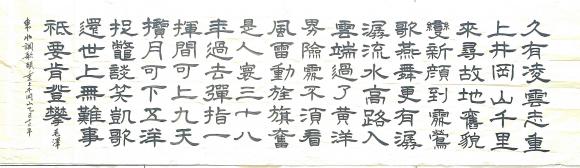 久有凌雲志重
上井岡山千里
來尋故地舊貌
變新顏到處鶯
歌燕舞更有潺
潺流水高路入
雲端過了黃洋
界險處不須看
風雷動旌旗奮
是人寰三十八
年過去彈指一
揮間可上九天
攬月可下五洋
捉鱉談笑凱歌
還世上無難事
祗要肯登攀毛澤
東水調歌頭重上井岡山